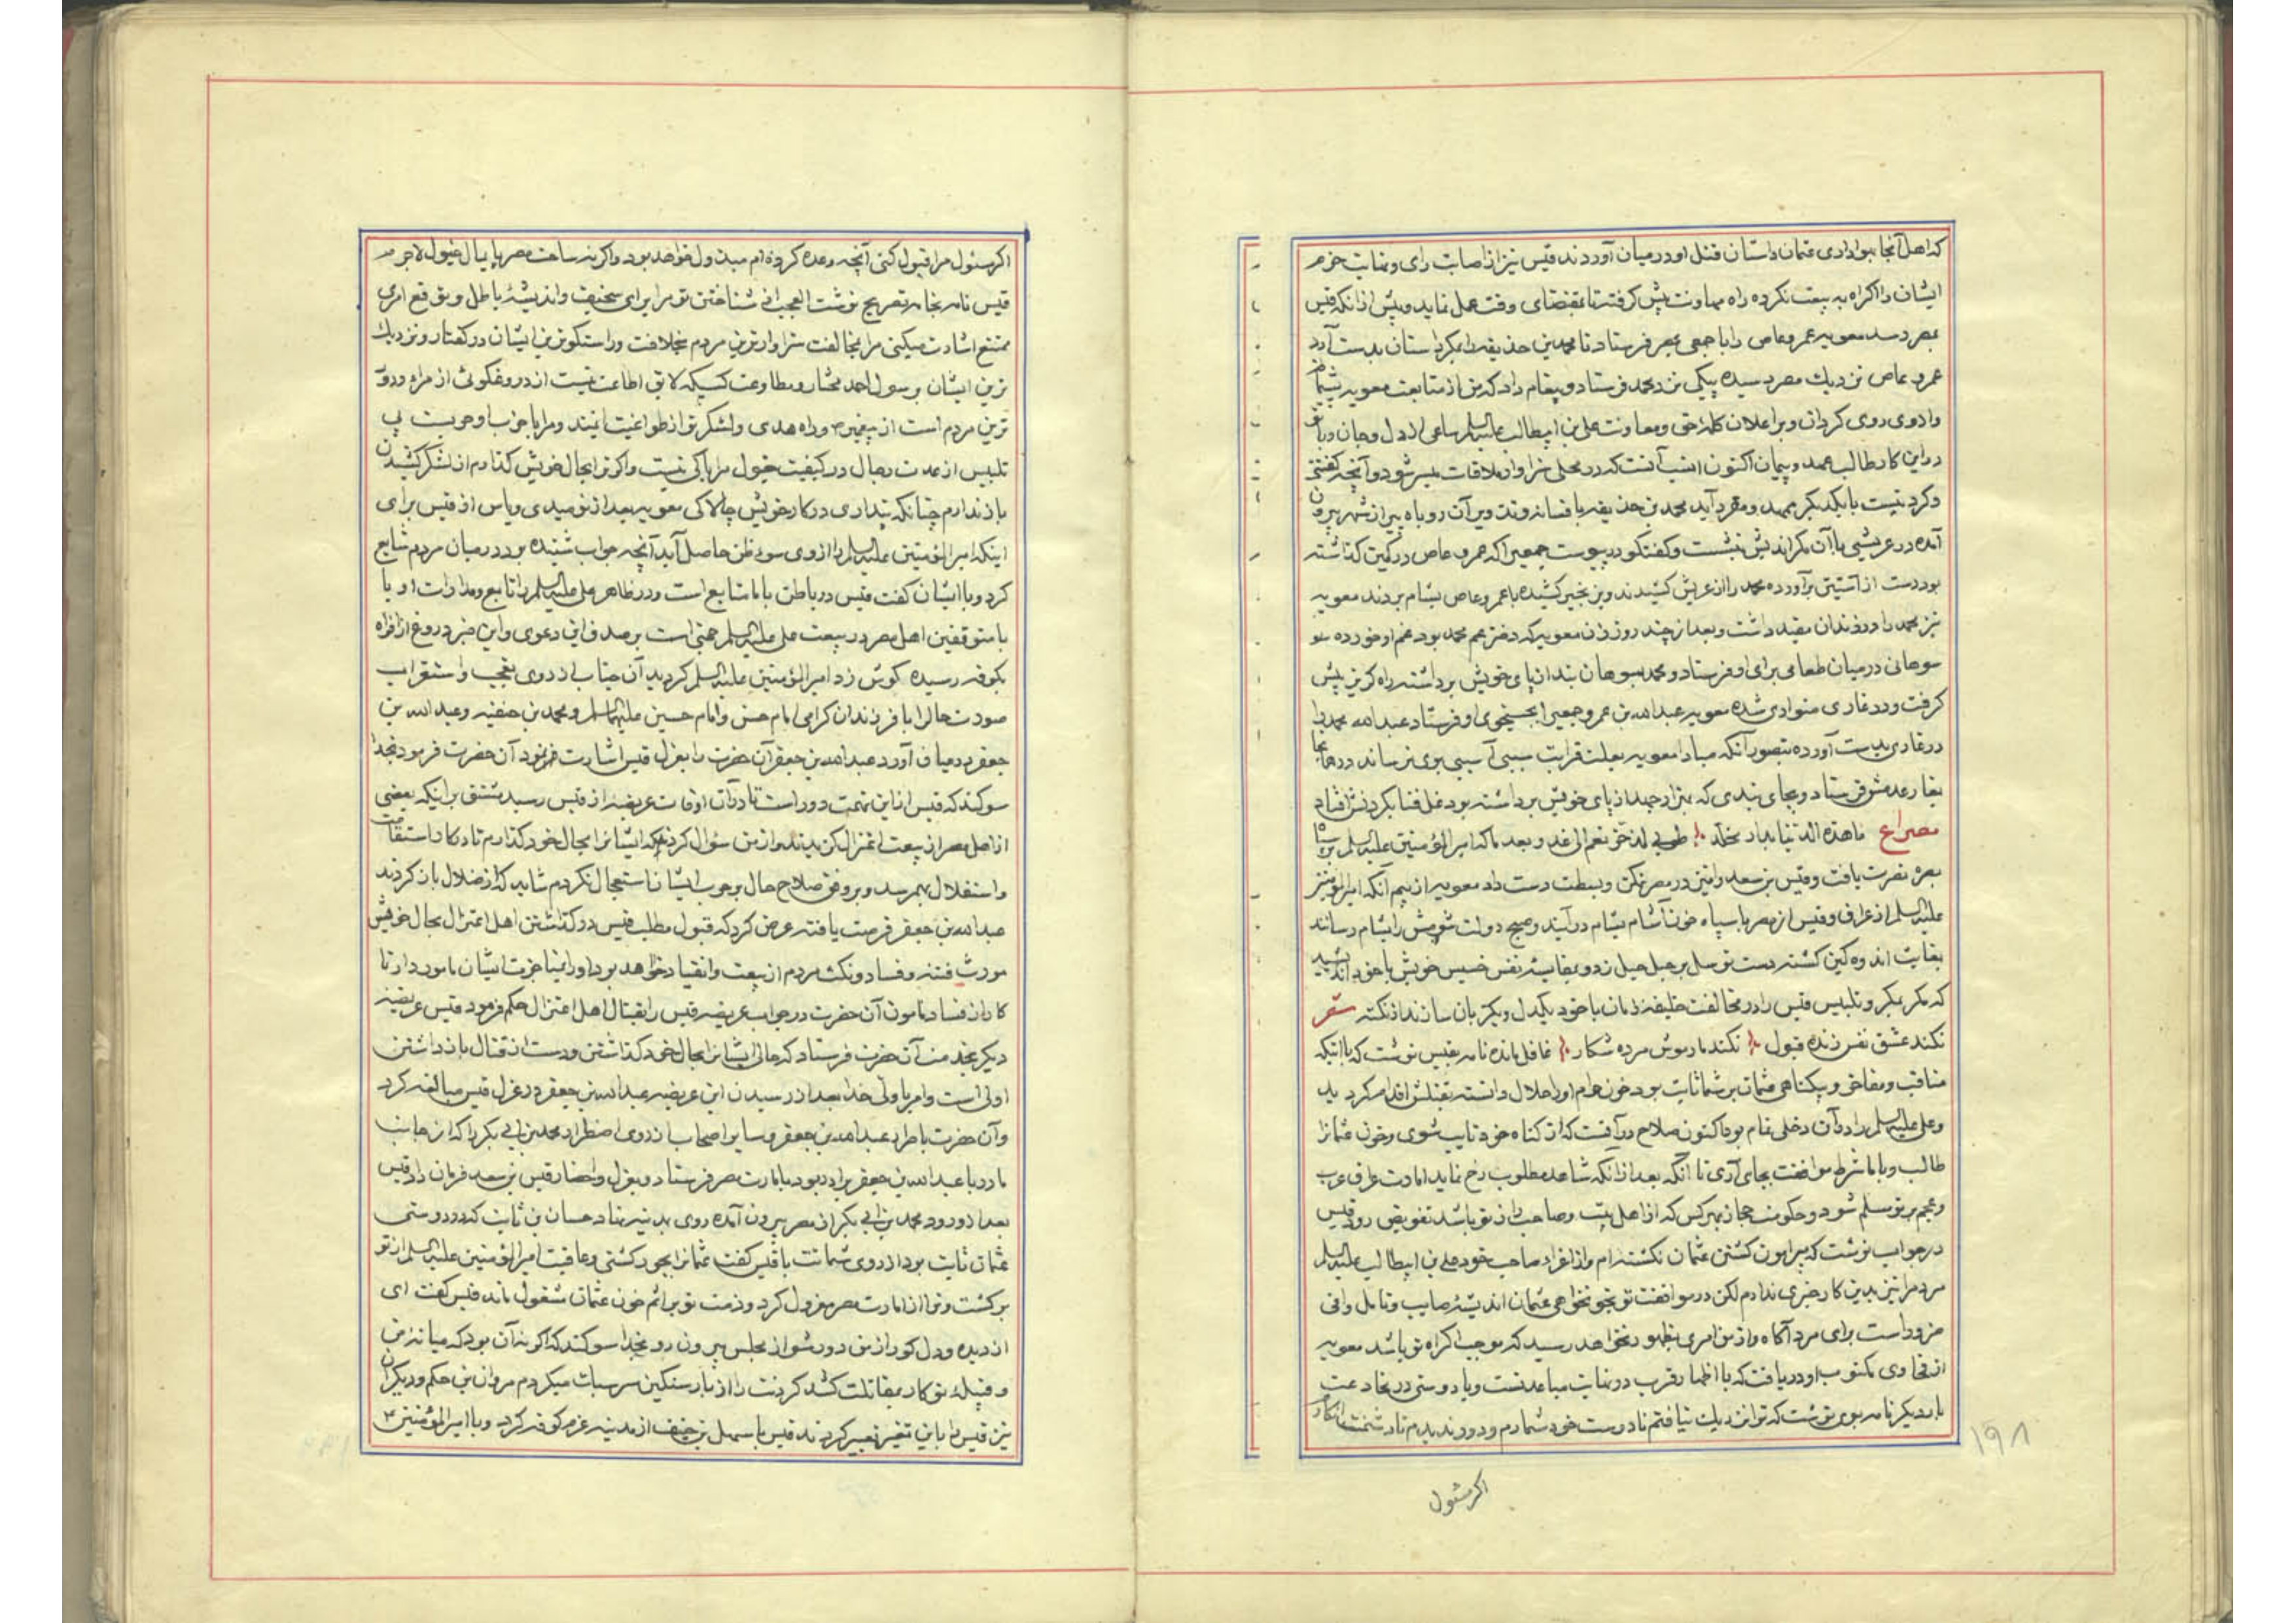 که اهل آنجا بهواداری عثمان داستان قتل او در میان آوردند قیس نیز از اصابت رای و نهایت حزم
ایشان را اکراه به بیعت نکرده راه مهاونت پیش گرفت تا بمقتضای وقت عمل نماید و پیش از آنکه قیس
بمصر رسد معویه عمرو عاص را با جمعی بمصر فرستاد تا محمد بن حذیفه را بمکر و دستان بدست آرد
عمرو عاص نزدیك مصر رسیده پیکی نزد محمد فرستاد و پیغام داد که من از متابعت معویه پشیمانم
و از وی روی گردان و بر اعلان کلمه حق و معاونت علی بن ابیطالب علیه السلم ساعی از دل و جان و با تو
در این کار طالب عهد و پیمان اکنون انسب آنست که در محلی سزاوار ملاقات میسر شود و آنچه گفتنی
و کردنیست با یکدیگر ممهد و مقرر آید محمد بن حذیفه بافسانه و فند و یرآن روباه پیر از شهر بیرون
آمده در عریشی با آن مکر اندیش نشست و گفتگو در پیوست جمعی را که عمرو عاص در کمین گذاشته
بود دست از آستین برآورده محمد را از عریش کشیدند و بزنجیر کشیده با عمرو عاص بشام بردند معویه
نیز محمد را در زندان مقید داشت و بعد از چند روز زن معویه که دختر عم محمد بود غم او خورده
سوهانی در میان طعامی برای او فرستاد و محمد بسوهان بند از پای خویش برداشته راه گریز پیش
گرفت و در غاری متواری شده معویه عبدالله بن عمرو جمعی را بجستجوی او فرستاد عبدالله محمد را
در غاری بدست آورده بتصور آنکه مبادا معویه بعلت قرابت سببی آسیبی بوی نرساند در همانجا
بقا رعدمش فرستاد و بجای بندی که بهزار جهد از پای خویش برداشته بود غل فنا بگردنش افتاد
مصراع ما هذه الدنیا بدار مخلّد طوبی لمن حز نعم الی غد و بعد ما که امیرالمؤمنین علیه السلم بر سپاه
بصره نصرت یافت و قیس بن سعد را نیز در مصر تمکن و بسطت دست داد معویه از بیم آنکه امیرالمؤمنین
علیه السلم از عراق و قیس از مصر با سپاه خون آشام بشام درآیند و صبح دولت شومش را بشام رسانند
بغایت اندوهگین گشته دست توسل بر حبل حیل زد و بمقایسه نفس خسیس خویش با خود اندیشید
که مگر بمکر و تلبیس قیس را در مخالفت خلیفه زمان با خود یکدل و یکزبان سازند از نکته شعر
نکند عشق نفس زنده قبول نکند باز موش مرده شکار غافل مانده نامه بقیس نوشت که با اینکه
مناقب و مفاخر و بیگناهی عثمان بر شما ثابت بود خون حرام او را حلال دانسته بقتلش اقدام کردید
و علی علیه السلم را در آن دخلی تمام بود اکنون صلاح در آنست که از گناه خود تایب شوی و خون عثمانرا
طالب و با ما شرط موافقت بجای آری تا آنگه بعد از آنکه شاهد مطلوب رخ نماید امارت عراق عرب
و عجم بر تو مسلم شود و حکومت حجاز بهرکس که از اهل بیت و صاحب راز تو باشد تفویض رود قیس
در جواب نوشت که پیرامون کشتن عثمان نگشته ام و از اغراء صاحب خود علی بن ابیطالب علیه السلم
مردم را نیز بدین کار خبری ندارم لکن در موافقت تو بخونخواهی عثمان اندیشه صایب و تامل وافی
ضروراست برای مرد آگاه و از من امری بظهور نخواهد رسید که موجب اکراه تو باشد معویه
از فحاوی مکتوب او دریافت که با اظهار قرب در نهایت مباعدتست و با دوستی در مخادعت
بار دیگر نامه بوی نوشت که تو را نزدیك نیافتم تا دوست خود شمارم و دور ندیدم تا دشمنت انگارم
اکر مسئول
۱۹۸
اکر مسئول مرا قبول کنی آنچه وعده کرده ام مبذول خواهد بود و اگر نه ساحت مصر پایمال خیول لاجرم
قیس نامه بخامه تصریح نوشت العجب از شناختن تو مرا برای سخیف و اندیشه باطل و بوقوع امری
ممتنع اشارت میکنی مرا بمخالفت سزاوارترین مردم بخلافت و راستگوترین ایشان در گفتار و نزدیك
ترین ایشان برسول احمد مختار و مطاوعت کسیکه لایق اطاعت نیست از دروغگوئی از مراه و دور
ترین مردم است از پیغمبر ص و راه هدی و لشگر تو از طواغیت ایمنند و مرا با حزاب او حویست بی
تلبیس از عدت رجال در کیفیت خیول مرا باکی نیست و اگر ترا بحال خویش گذارم از لشکر کشیدن
باز ندارم چنانکه پنداری در کار خویش چالاکی معویه بعد از نومیدی و یاس از قیس برای
اینکه امیرالمؤمنین علیه السلم را از وی سوء ظن حاصل آید آنچه جواب شنیده بود در میان مردم شایع
کرد و با ایشان گفت قیس در باطن با ما متابع است و در ظاهر علی علیه السلم را تابع و مدارات او با
با متوقفین اهل مصر در بیعت علی علیه السلم حجتی است بر صدق این دعوی و این خبر دروغ از افواه
بکوفه رسیده گوش زد امیرالمؤمنین علیه السلم گردید آن جناب از روی تعجب و استغراب
صورت حال را با فرزندان گرامی امام حسن و امام حسین علیهما السلم و محمد بن حنفیه و عبدالله بن
جعفر در میان آورد عبدالله بن جعفر آن حضرت را بعزل قیس اشارت فرمود آن حضرت فرمود بخدا
سوگند که قیس از این تهمت دور است تا در آن اوقات عریضه از قیس رسید مشتق بر اینکه بعضی
از اهل مصر از بیعت اعتزال گزیدند و از من سؤال کردند که ایشان را بحال خود گذارم تا در کار استقامت
و استقلال بهمرسد و بر وفق صلاح حال بر حرب ایشان استعجال نکردم شاید که از ضلال باز گردند
عبدالله بن جعفر فرصت یافته عرض کرد که قبول مطلب قیس در گذاشتن اهل اعتزال بحال خویش
مورث فتنه و فساد و نکث مردم از بیعت و انقیاد خواهد بود او را بمناجزت ایشان مامور دار تا
کار از فساد مامون آن حضرت در جواب عریضه قیس را بقتال اهل اعتزال حکم فرمود قیس عریضه
دیگر بخدمت آن حضرت فرستاد که حالی ایشان را بحال خود گذاشتن و دست از قتال باز داشتن
اولی است و امر با ولی خدا بعد از رسیدن این عریضه عبدالله بن جعفر در عزل قیس مبالغه کرد
و آن حضرت باصرار عبدالله بن جعفر و سایر اصحاب از روی اضطرار محمد بن ابی بکر را که از جانب
مادر با عبدالله بن جعفر برادر بود بامارت مصر فرستاد و بعزل و احضار قیس بن سعد فرمان داد قیس
بعد از ورود محمد بن ابی بکر از مصر بیرون آمده روی بمدینه نهاد حسان بن ثابت که در دوستی
عثمان ثابت بود از روی شماتت با قیس گفت عثمان را بجور کشتی و عاقبت امیرالمؤمنین علیه السلم از تو
برگشت و ترا از امارت مصر معزول کرد و ذمت تو بر اثم خون عثمان مشغول ماند قیس گفت ای
از دیده و دل کور از من دور شو از مجلس بیرون رو بخدا سوگند که اگر نه آن بود که میانه من
و قبیله تو کار بمقاتلت کشد گردنت را از بار سنگین سر سبك میکردم مروان بن حکم و دیگران
نیز قیس را باین تغییر تعییر کردند قیس با سهل بن حنیف از مدینه عزم کوفه کرد و با امیرالمؤمنین ع